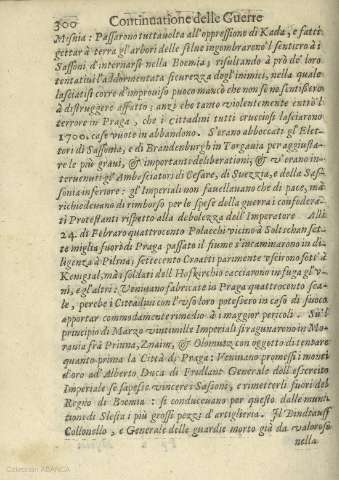 300 Continuatione delle Guerre
Mesnia: Passarono tuttauolta all'oppressione di Kada, e fatti
gettar à terra gl'arbori delle silue ingombrarono l'sentiero à i
Sassoni d'internarsi nella Boemia; risultando à prò de' loro
tentatiui l'addormentata sicurezza degl'inimici, nella quale
lasciatisi corre d'improuiso puoco mancò che non se ne sentissero
à distruggere affatto; anzi che tamo violentemente entrò'l
terrore in Praga, che i cittadini tutti crucciosi lasciarono
1700. case vuote in abbandono. S'erano abboccati gl'Elet-
tori di Sassonia, e di Brandenburgh in Torgania per aggiusta-
re le più graui, & importante deliberationi, & v'erano in-
teruenuti gl'Ambasciatori di Cesare, di Suezzia, e della Sas-
sonia inferiore: gl'Imperiali non fauellauano che di pace, ma
richiedeuano di rimborso per le spese della guerra i confedera-
ti Protestanti rispetto alla debolezza dell'Imperatore Alli
24. di Febraro quattrocento Polacchi vicino à Soltschan set-
te miglia fuori di Praga passato il fiume s'incaminarono in di-
ligenza à Pilsna; settecento Croatti parimente vscirono sott'à
Kenigsal, mà i soldati dell'Hofskirchio cacciarono in fuga gl'v-
ni, e gl'altri: Veniuano fabricate in Praga quattrocento sca-
le, perche i Cittadini con l'vso loro potessero in caso di fuoco
apportar commodamente rimedio à i maggior pericoli. Su'l
principio di Marzo vintimille Imperiali si ragunarono in Mo-
rauia frà Prinna, Znaim, & Olomutz con oggetto di tentare
quanto prima la Città di Praga: Veniuano promessi i monti
d'oro ad Alberto Duca di Fridlant Generale dell'essercito
Imperiale se sapesse vincere i Sassoni, e rimetterli fuori del
Regno di Boemia: si conduceuano per questo dalle muni-
tione di Slesia i più grossi pezzi d'artiglieria. Il Bindtauff
Collonello, e Generale delle guardie morto già da valoroso
nella
Colección ABANCA